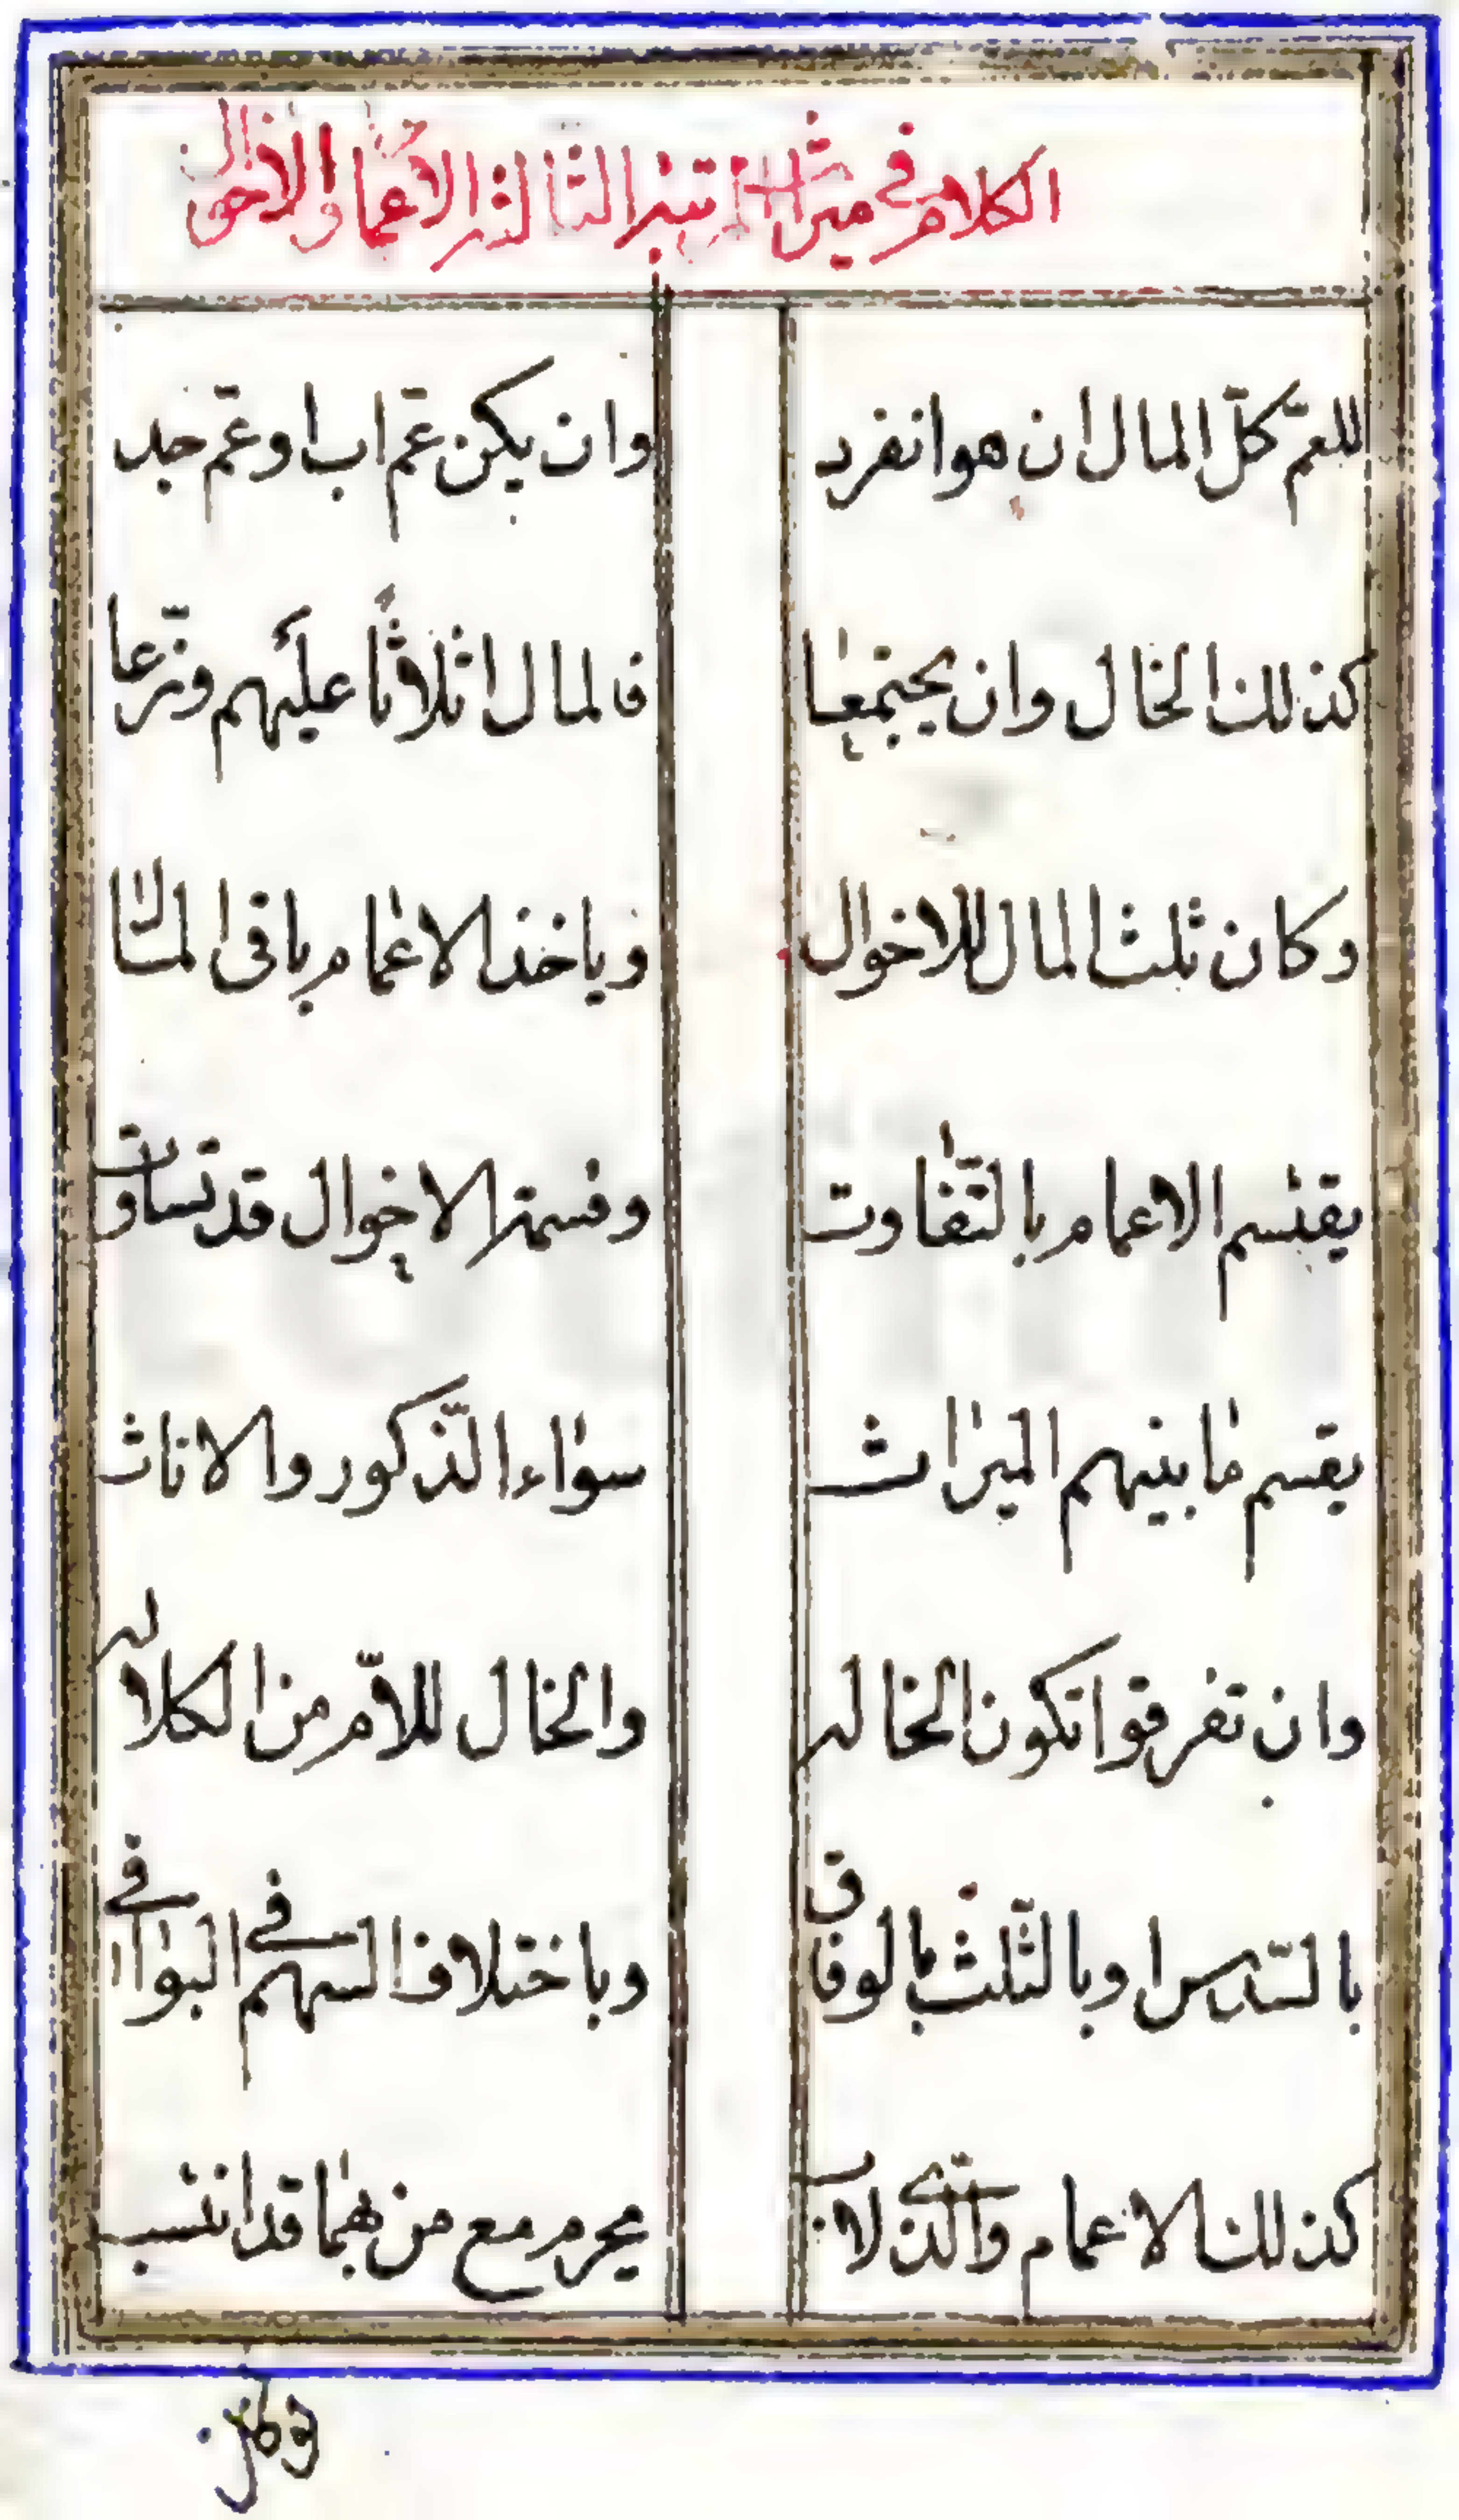 الكلام في ميراث المرتبة الثالثة الاعمام والاخوال
للعمّ كلّ المال ان هو انفرد وان يكن عمّ اب او عمّ جد
كذلك الخال وان يجتمعا فالمال اثلاثًا عليهم وزّعا
وكان ثلث المال للاخوال وياخذ الاعمام باقى المال
يقتسم الاعمام بالتّفاوت وقسمة الاخوال قد تساوت
يقسم ما بينهم الميراث سواء الذّكور والاناث
وان تفرقوا تكون الخاله والخال للامّ من الكلاله
بالسّدس او بالثّلث بالوفاق وباختلاف السهم في البواقي
كذلك الاعمام والّذى لاب يحرم مع من بهما قد انتسب